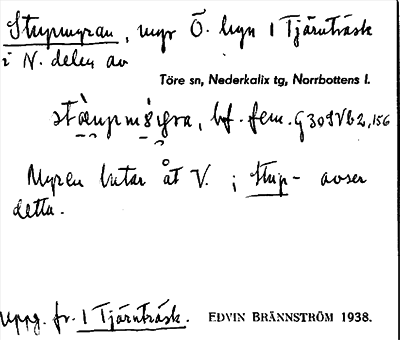 Stupmyran, myr Ö. byn 1 Tjärnträsk
i N. delen av
Töre sn, Nederkalix tg, Norrbottens l.
bf. fem. G309Vb2,156
Myren lutar åt V. ; stup- avser
detta.
uppg. fr. 1 Tjärnträsk. EDVIN BRÄNNSTRÖM 1938.